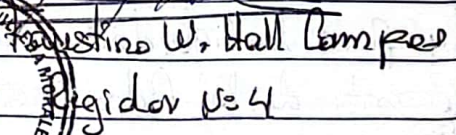 Faustino W. Hall Campos
Regidor N=4